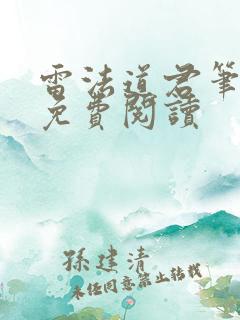 雷法道君筆
免費閱讀
孫建清
未经同意禁止转载